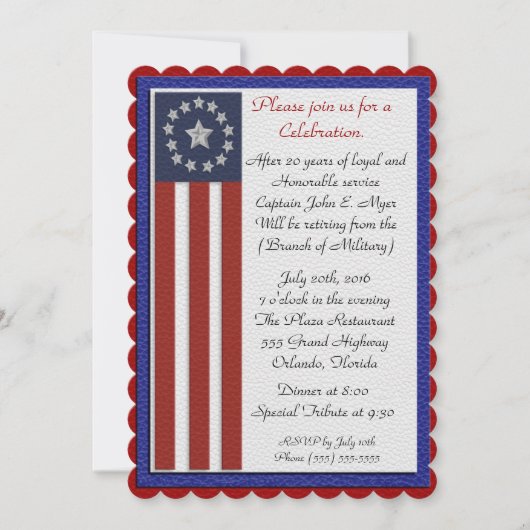 Please join us for a
Celebration.
After 20 years of loyal and
Honorable service
Captain John E. Myer
Will be retiring from the
(Branch of Military)
July 20th, 2016
7 o'clock in the evening
The Plaza Restaurant
555 Grand Highway
Orlando, Florida
Dinner at 8:00
Special Tribute at 9:30
RSVP by July 10th
Phone (555) 555-5555